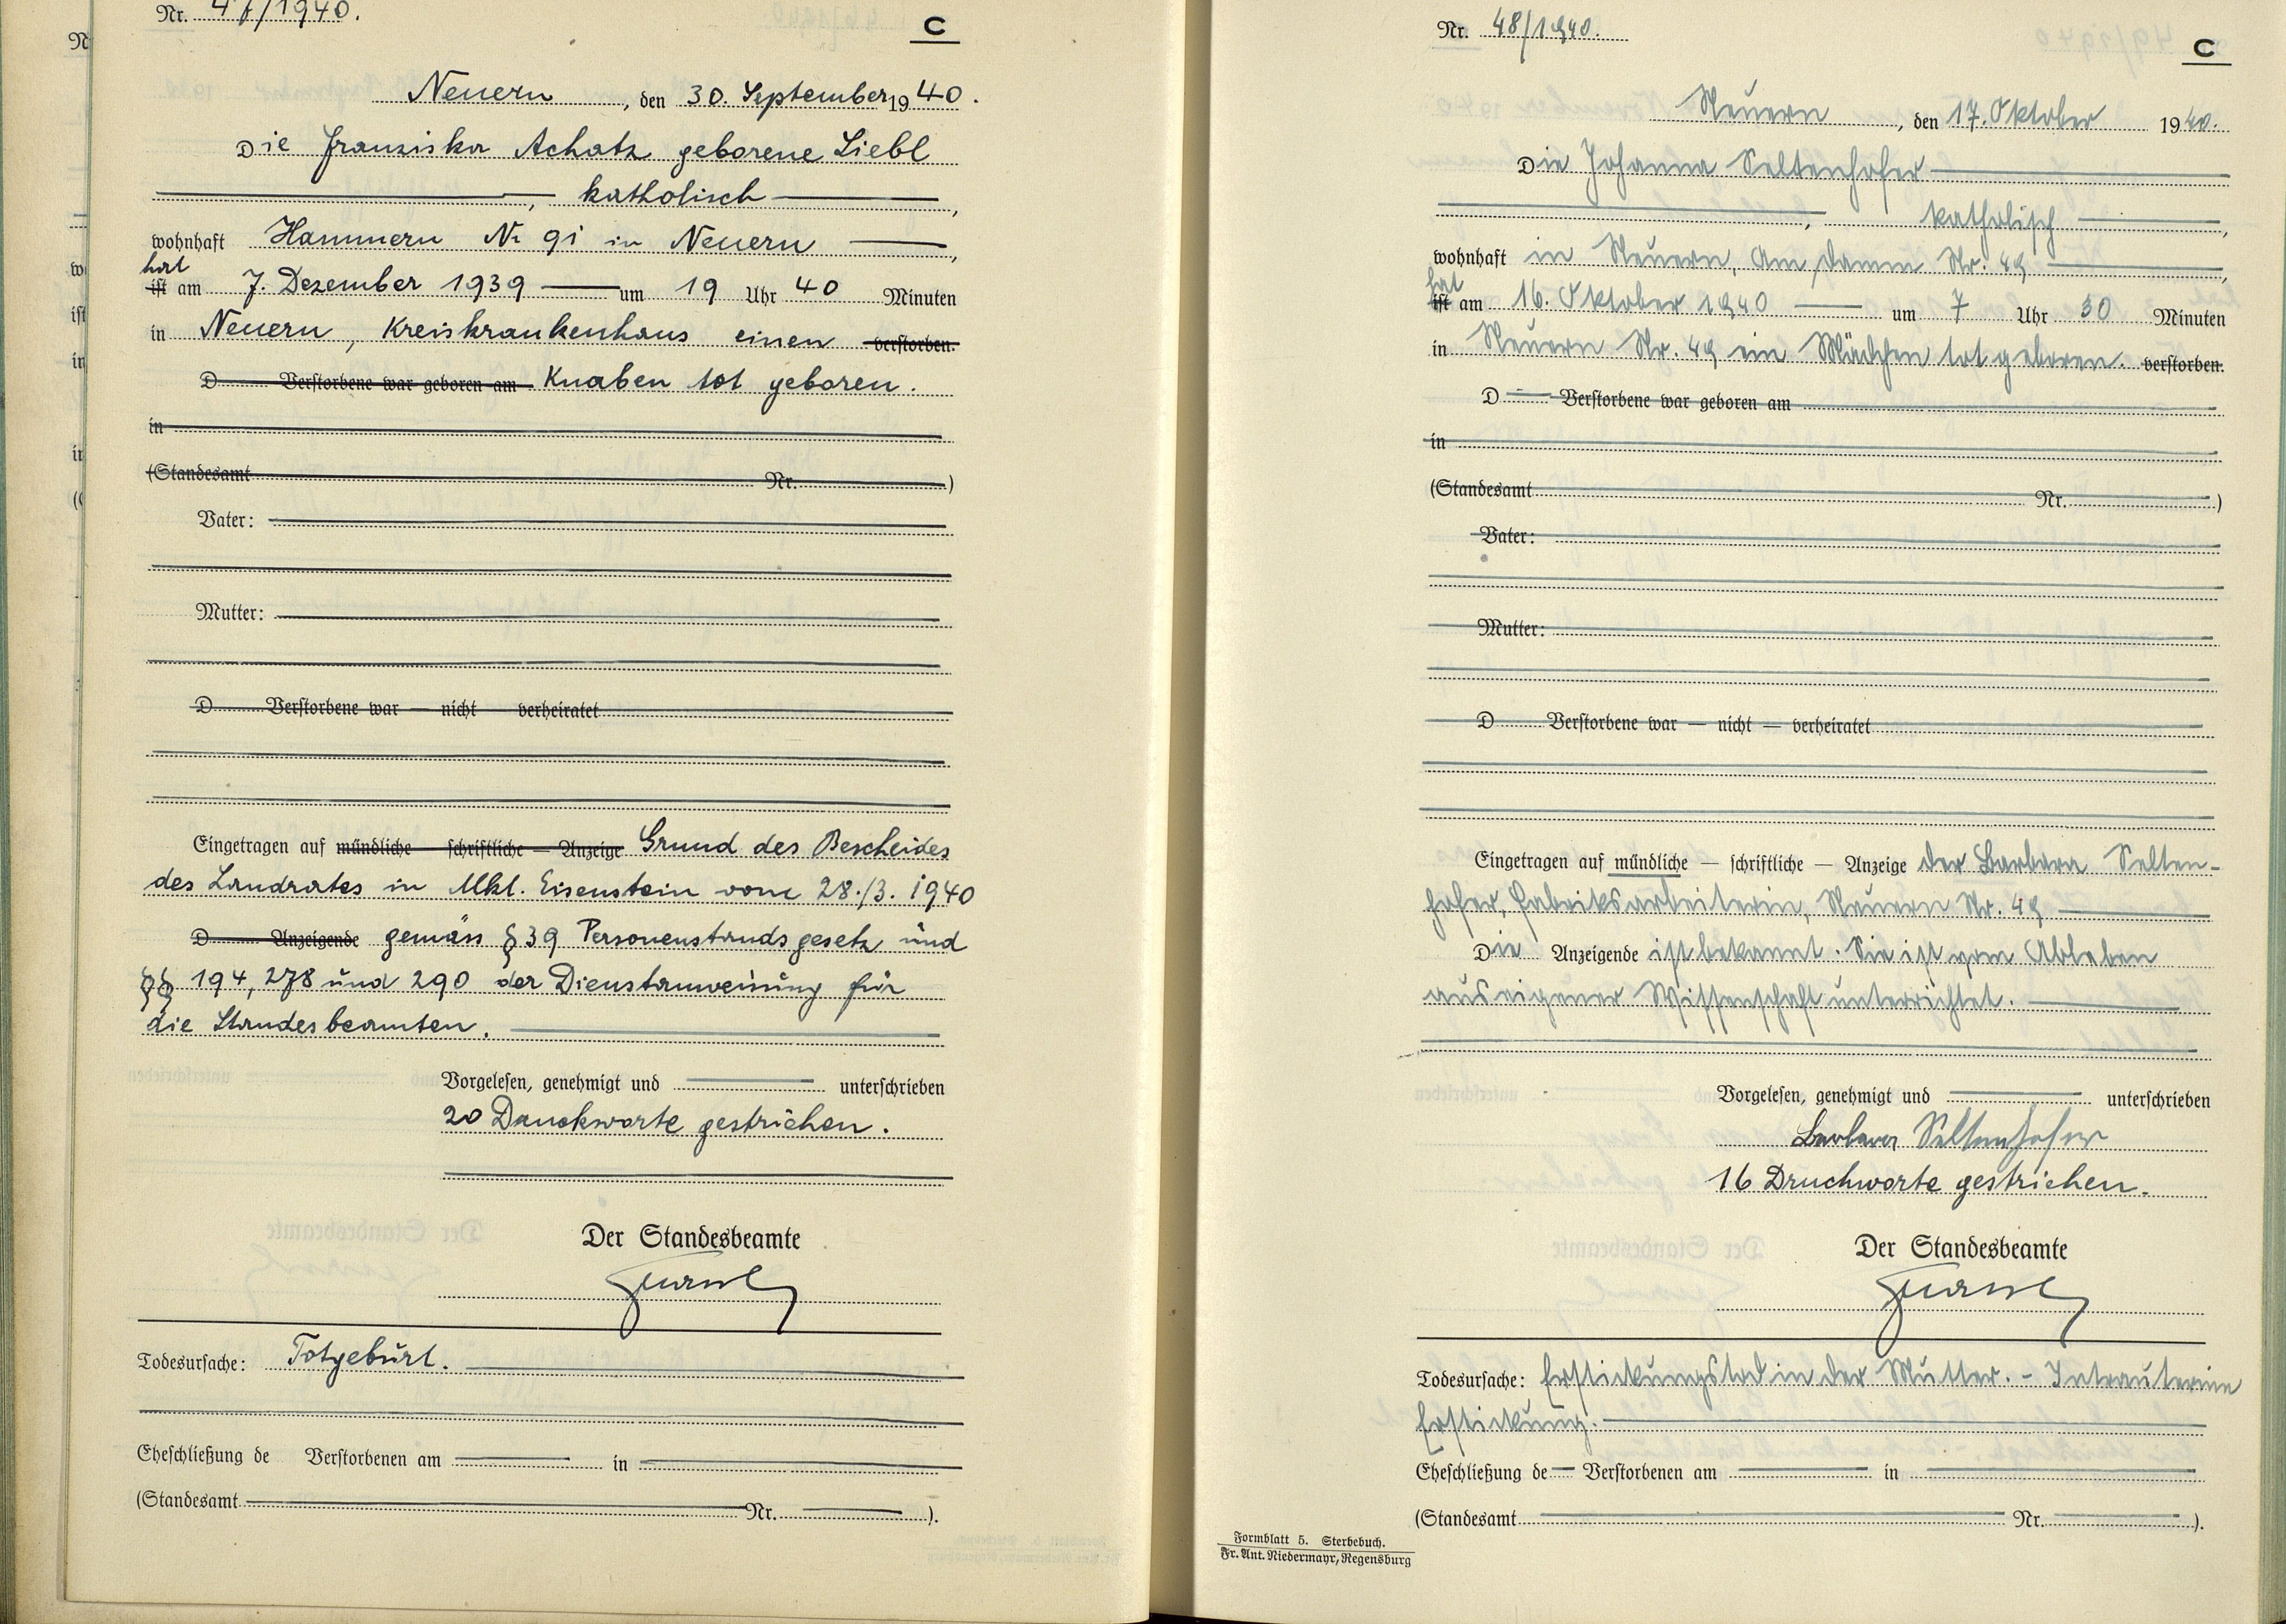 Nr. 47/1940.
C
Neuern, den 30. September 1940.
Die Franziska Achatz geborene Liebl
, katholisch ,
wohnhaft Hammern Nr 91 in Neuern ,
hat
ist am 7. Dezember 1939 um 19 Uhr 40 Minuten
in Neuern, Kreiskrankenhaus einen verstorben.
D Verstorbene war geboren am Knaben tot geboren.
in
(Standesamt Nr. )
Vater:
Mutter:
D Verstorbene war — nicht verheiratet
Eingetragen auf mündliche schriftliche — Anzeige Grund des Bescheides
des Landrates in Mkt. Eisenstein vom 28./3. 1940
D Anzeigende gemäss § 39 Personenstandsgesetz und
§§ 194, 278 und 290 der Dienstanweisung für
die Standesbeamten.
Vorgelesen, genehmigt und unterschrieben
20 Druckworte gestrichen.
Der Standesbeamte
Todesursache: Totgeburt.
Eheschließung de Verstorbenen am in
(Standesamt Nr. ).
Nr. 48/1940.
C
Neuern, den 17. Oktober 1940.
Die Johanna Seltenhofer
, katholisch ,
wohnhaft in Neuern, Am Damm Nr. 49 ,
hat
ist am 16. Oktober 1940 um 7 Uhr 30 Minuten
in Neuern Nr. 49 ein Mädchen tot geboren. verstorben.
D Verstorbene war geboren am
in
(Standesamt Nr. )
Vater:
Mutter:
D Verstorbene war — nicht — verheiratet
Eingetragen auf mündliche — schriftliche — Anzeige der Barbara Selten-
hofer, Fabriksarbeiterin, Neuern Nr. 49
Die Anzeigende ist bekannt. Sie ist vom Ableben
aus eigener Wissenschaft unterrichtet.
Vorgelesen, genehmigt und unterschrieben
Barbara Seltenhofer
16 Druckworte gestrichen.
Der Standesbeamte
Todesursache: Erstickungstod in der Mutter. - Intrauterine
Erstickung.
Eheschließung de Verstorbenen am in
(Standesamt Nr. ).
Formblatt 5. Sterbebuch.
Fr. Ant. Niedermayr, Regensburg